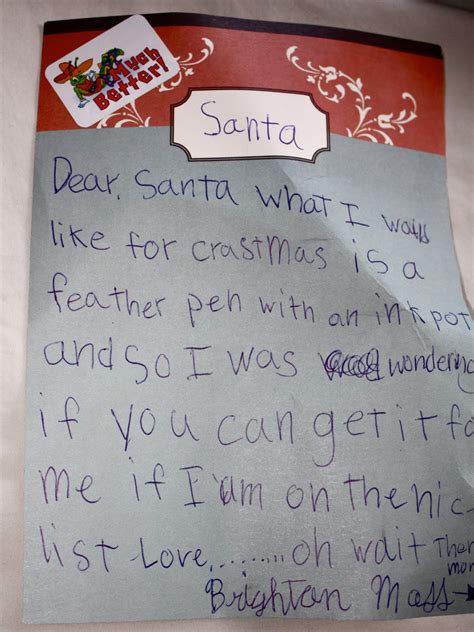 Much
Better!
Santa
Dear, Santa what I
like for crastmas is a
feather pen with an ink pot
and so I was wondering
if you can get it fo
me if I am on the nic
list Love,........oh wait Ther
mor
Brighton Moss